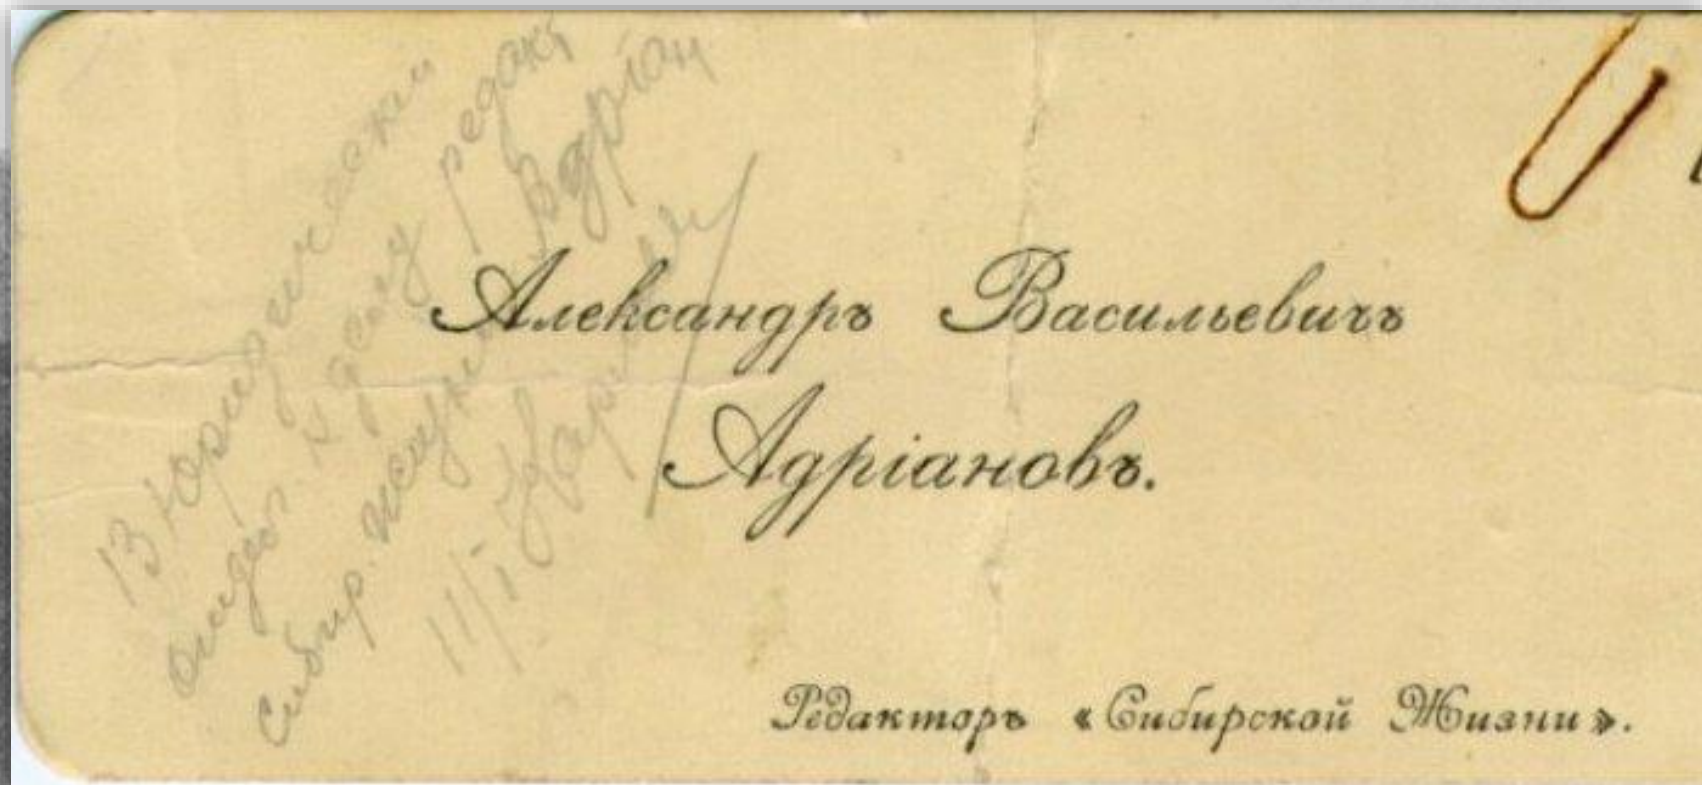 В юридический
отдел к делу редакт
Сибир. жизни Адриан
11/I
Александръ Васильевичъ
Адріановъ.
Редакторъ «Сибирской Жизни».